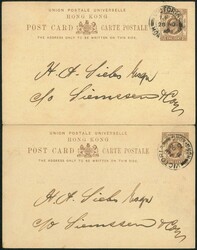 UNION POSTALE UNIVERSELLE
HONG KONG
POST CARD CARTE POSTALE
THE ADDRESS ONLY TO BE WRITTEN ON THIS SIDE.
H. A. Siebs Esqre
c/o Siemssen & Co
UNION POSTALE UNIVERSELLE
HONG KONG
POST CARD CARTE POSTALE
THE ADDRESS ONLY TO BE WRITTEN ON THIS SIDE.
H. A. Siebs Esqre
c/o Siemssen & Co